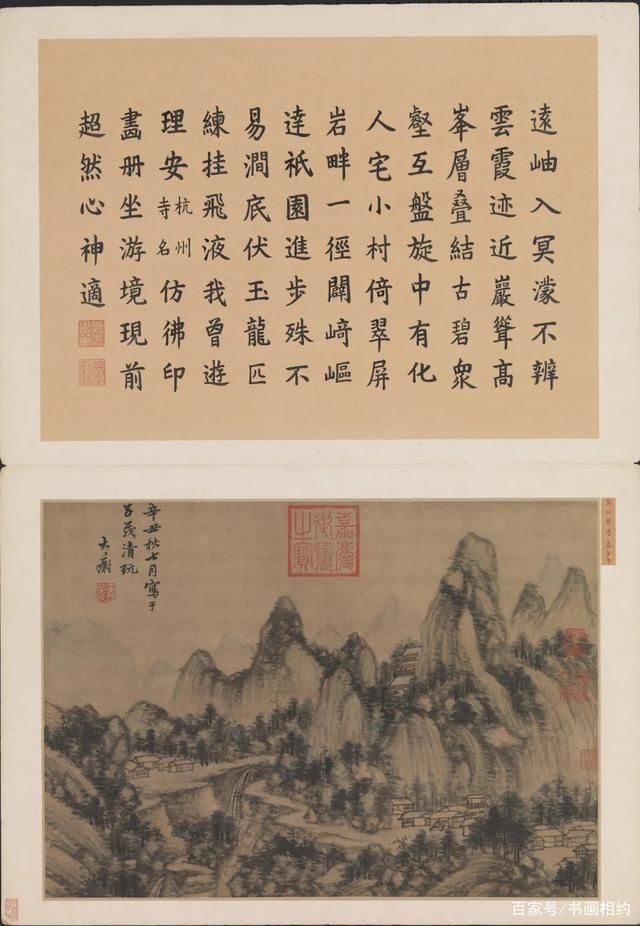 遠岫入冥濛不辨
雲霞迹近巖聳高
峯層叠結古碧衆
壑互盤旋中有化
人宅小村倚翠屏
岩畔一徑闢崎嶇
達祇園進步殊不
易澗底伏玉龍匹
練挂飛液我曾遊
理安杭州寺名仿彿印
畵册坐游境現前
超然心神適
嘉慶
御覽
之寶
辛丑秋七月寫于
子茂清玩
大癡
百家号/书画相约